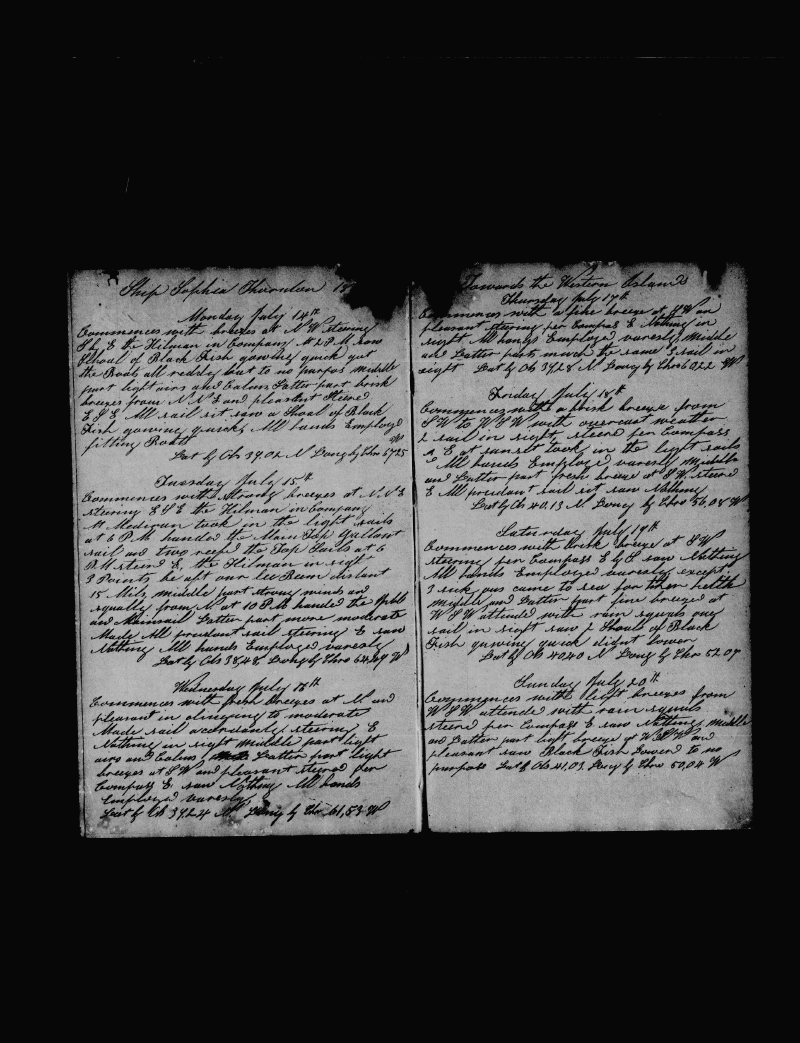 Ship Sophia Thornton 18
Monday July 14th
Commences with breezes at N.W. steering
E the Hilman in Company At 2 P.M. saw
Shoal of Black Fish gowing quick got
the Boats all reddy but to no purpas middle
part light airs and Calms Latter part brisk
breezes from N.N.E and pleastent Steered
E S E All sail sit saw a Shoal of Black
Fish gowing quick, All hands Employed
fitting W
Lat by Obs 39.02 N Long by Chro 67 25
Tuesday July 15th
Commences with strong breezes at N.N.E
steering E S E the Hilman in Company
Mr took in the light sails
at 6 P.M handed the Main Top Gallant
sail and two reefd the Top Sails at 6
P.M steerd E, the Hilman in sight
3 Points be aft our lee Beem distant
15 Mils, middle part strong winds and
squally from N at 10 P.M handed the
and Mainsail Latter part more moderate
Made All preudant sail steering E saw
Nothing All hands Employed varesly
Lat by Obs 38,48 Long by Chro W
Wednesday July 16th
Commences with fresh breezes at N. and
pleasant in clinying to moderate
Made sail acordandy steering E
Nothing in sight middle part light
airs and Calms Latter part light
breezes at S W and pleasant steerd per
Compass E saw Nothing All hands
Employed varesly
Lat by Ob 39,24 N Long by Chr 61,53 W
Towards the Western Islands
Thursday July 17th
Commences with a fine breeze at S W an
pleasant steering per Compas E Nothing in
sight All hands Employed varesly Middle
and Latter part much the same 3 sail in
sight Lat by Ob 39,28 N Long by Chro 60,22 W
Friday July 18th
Commences with a brisk breeze from
S W to W S W with overcast weather
2 sail in sight, steerd per Compass
E at sunset took in the light sails
All hands Employed varesly Middle
and Latter part fresh breeze at S W. steerd
E All preudant sail sit saw Nothing
Lat by Ob 40.13 N Long by Chro 56,08 W
Saturday July 19th
Commences with brisk breeze at S W
steering per Compass E by S saw Nothing
All hands Employed varesly except
3 sick ons came to sea for their helth
Middle and Latter part fine breeze at
W S W attende with rain squals one
sail in sight saw 2 Shouls of Black
Fish gowing quick didnt lower
Lat by Ob 40,40 N Long by Chro 52 07
Sunday July 20th
Commences with light breezes from
W S W attende with rain squals
steerd per Compass E saw Nothing Middle
and Latter part light breeze at W S W and
pleasant saw Black Fish Lowerd to no
purpass Lat by Ob 41,03 Long by Chro 50,04 W